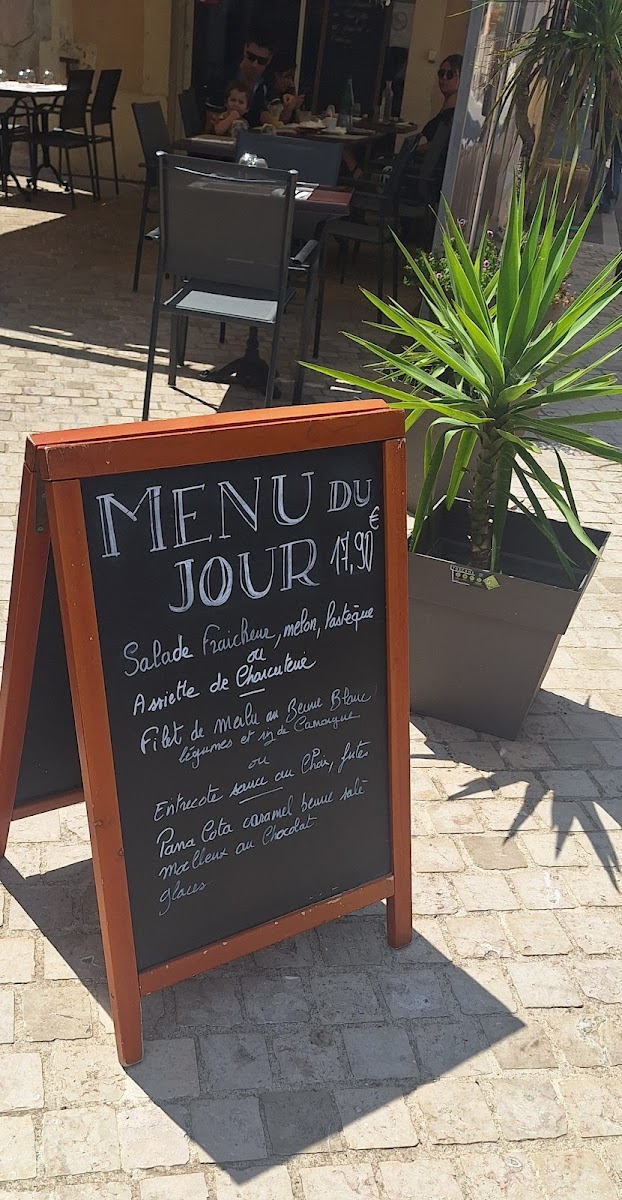 MENU DU
JOUR 17,90€
Salade Fraicheur, melon, Pastèque
ou
Assiette de Charcuterie
Filet de merlu au Beurre Blanc
légumes et riz de Camargue
ou
Entrecote sauce au Choix, frites
Pana Cota caramel beurre salé
Moelleux au Chocolat
glaces